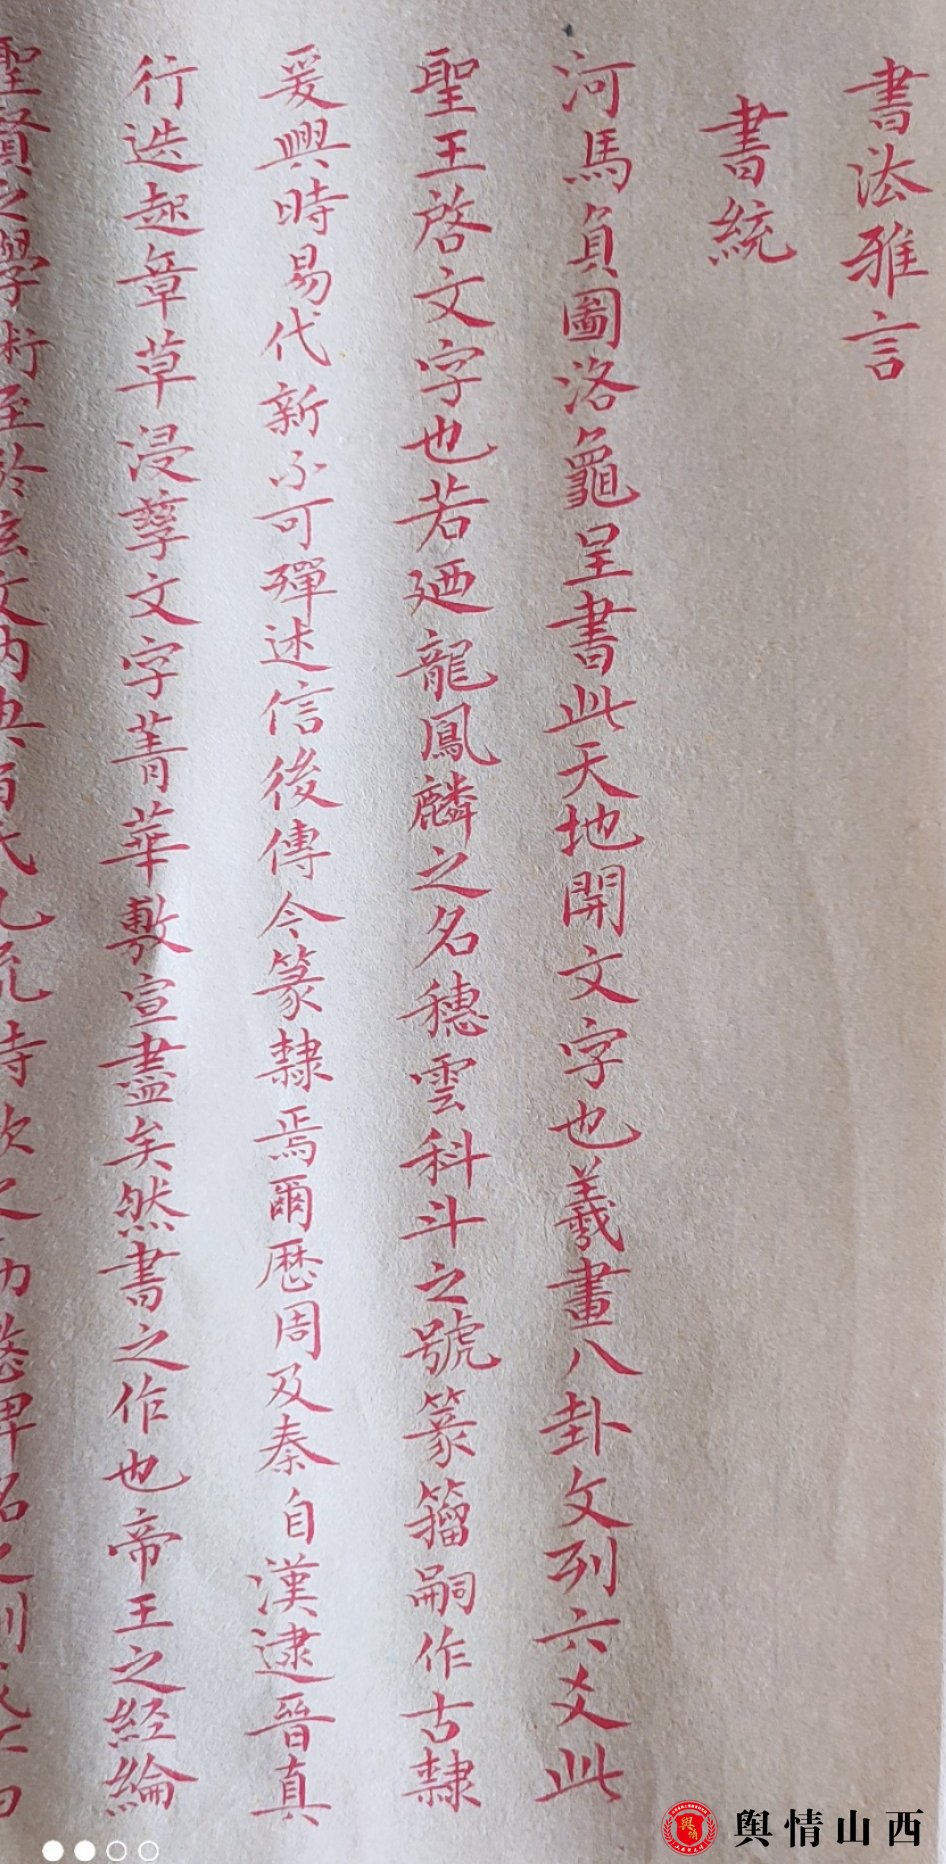 書法雅言
書統
河馬負圖洛龜呈書此天地開文字也羲畫八卦文列六爻此
聖王啓文字也若廼龍鳳麟之名穗雲科斗之號篆籀嗣作古隸
爰興時易代新不可殫述信後傳今篆隸焉爾歷周及秦自漢逮晉真
行迭起章草浸孳文字菁華敷宣盡矣然書之作也帝王之経綸
聖賢之學術至於玄文内典百氏九流詩歌之
舆情山西